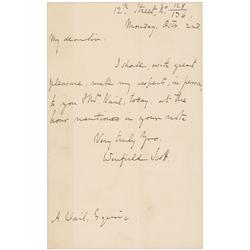 12th Street, No. 128/136.
Monday, Octr. 2nd
My dear sir,
I shall, with great
pleasure, make my respects, in person,
to you & Mrs. Vail, today, at the
hour mentioned in your note.
Very truly Yrs.
Winfield Scott.
A. Vail, Esquire